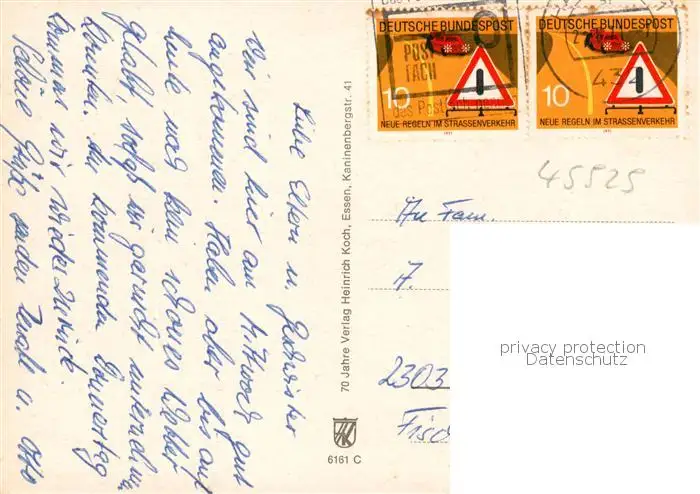 DEUTSCHE BUNDESPOST
10
NEUE REGELN IM STRASSENVERKEHR
1971
DEUTSCHE BUNDESPOST
10
NEUE REGELN IM STRASSENVERKEHR
1971
POST
FACH
434
45525
Liebe Eltern u. Geschwister
Wir sind hier am Mittwoch gut
angekommen. Haben aber bis auf
heute noch kein schönes Wetter
gehabt, sodaß wir garnicht
konnten. Am kommenden Donnertag
kommen wir wieder
Grüße senden u. Otto
70 Jahre Verlag Heinrich Koch, Essen, Kaninenbergstr. 41
6161 C
An Fam.
A.
2303
privacy protection
Datenschutz